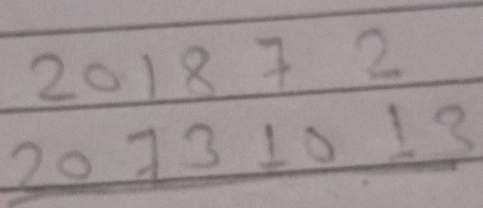 2018 7 2
20 7 3 10 13